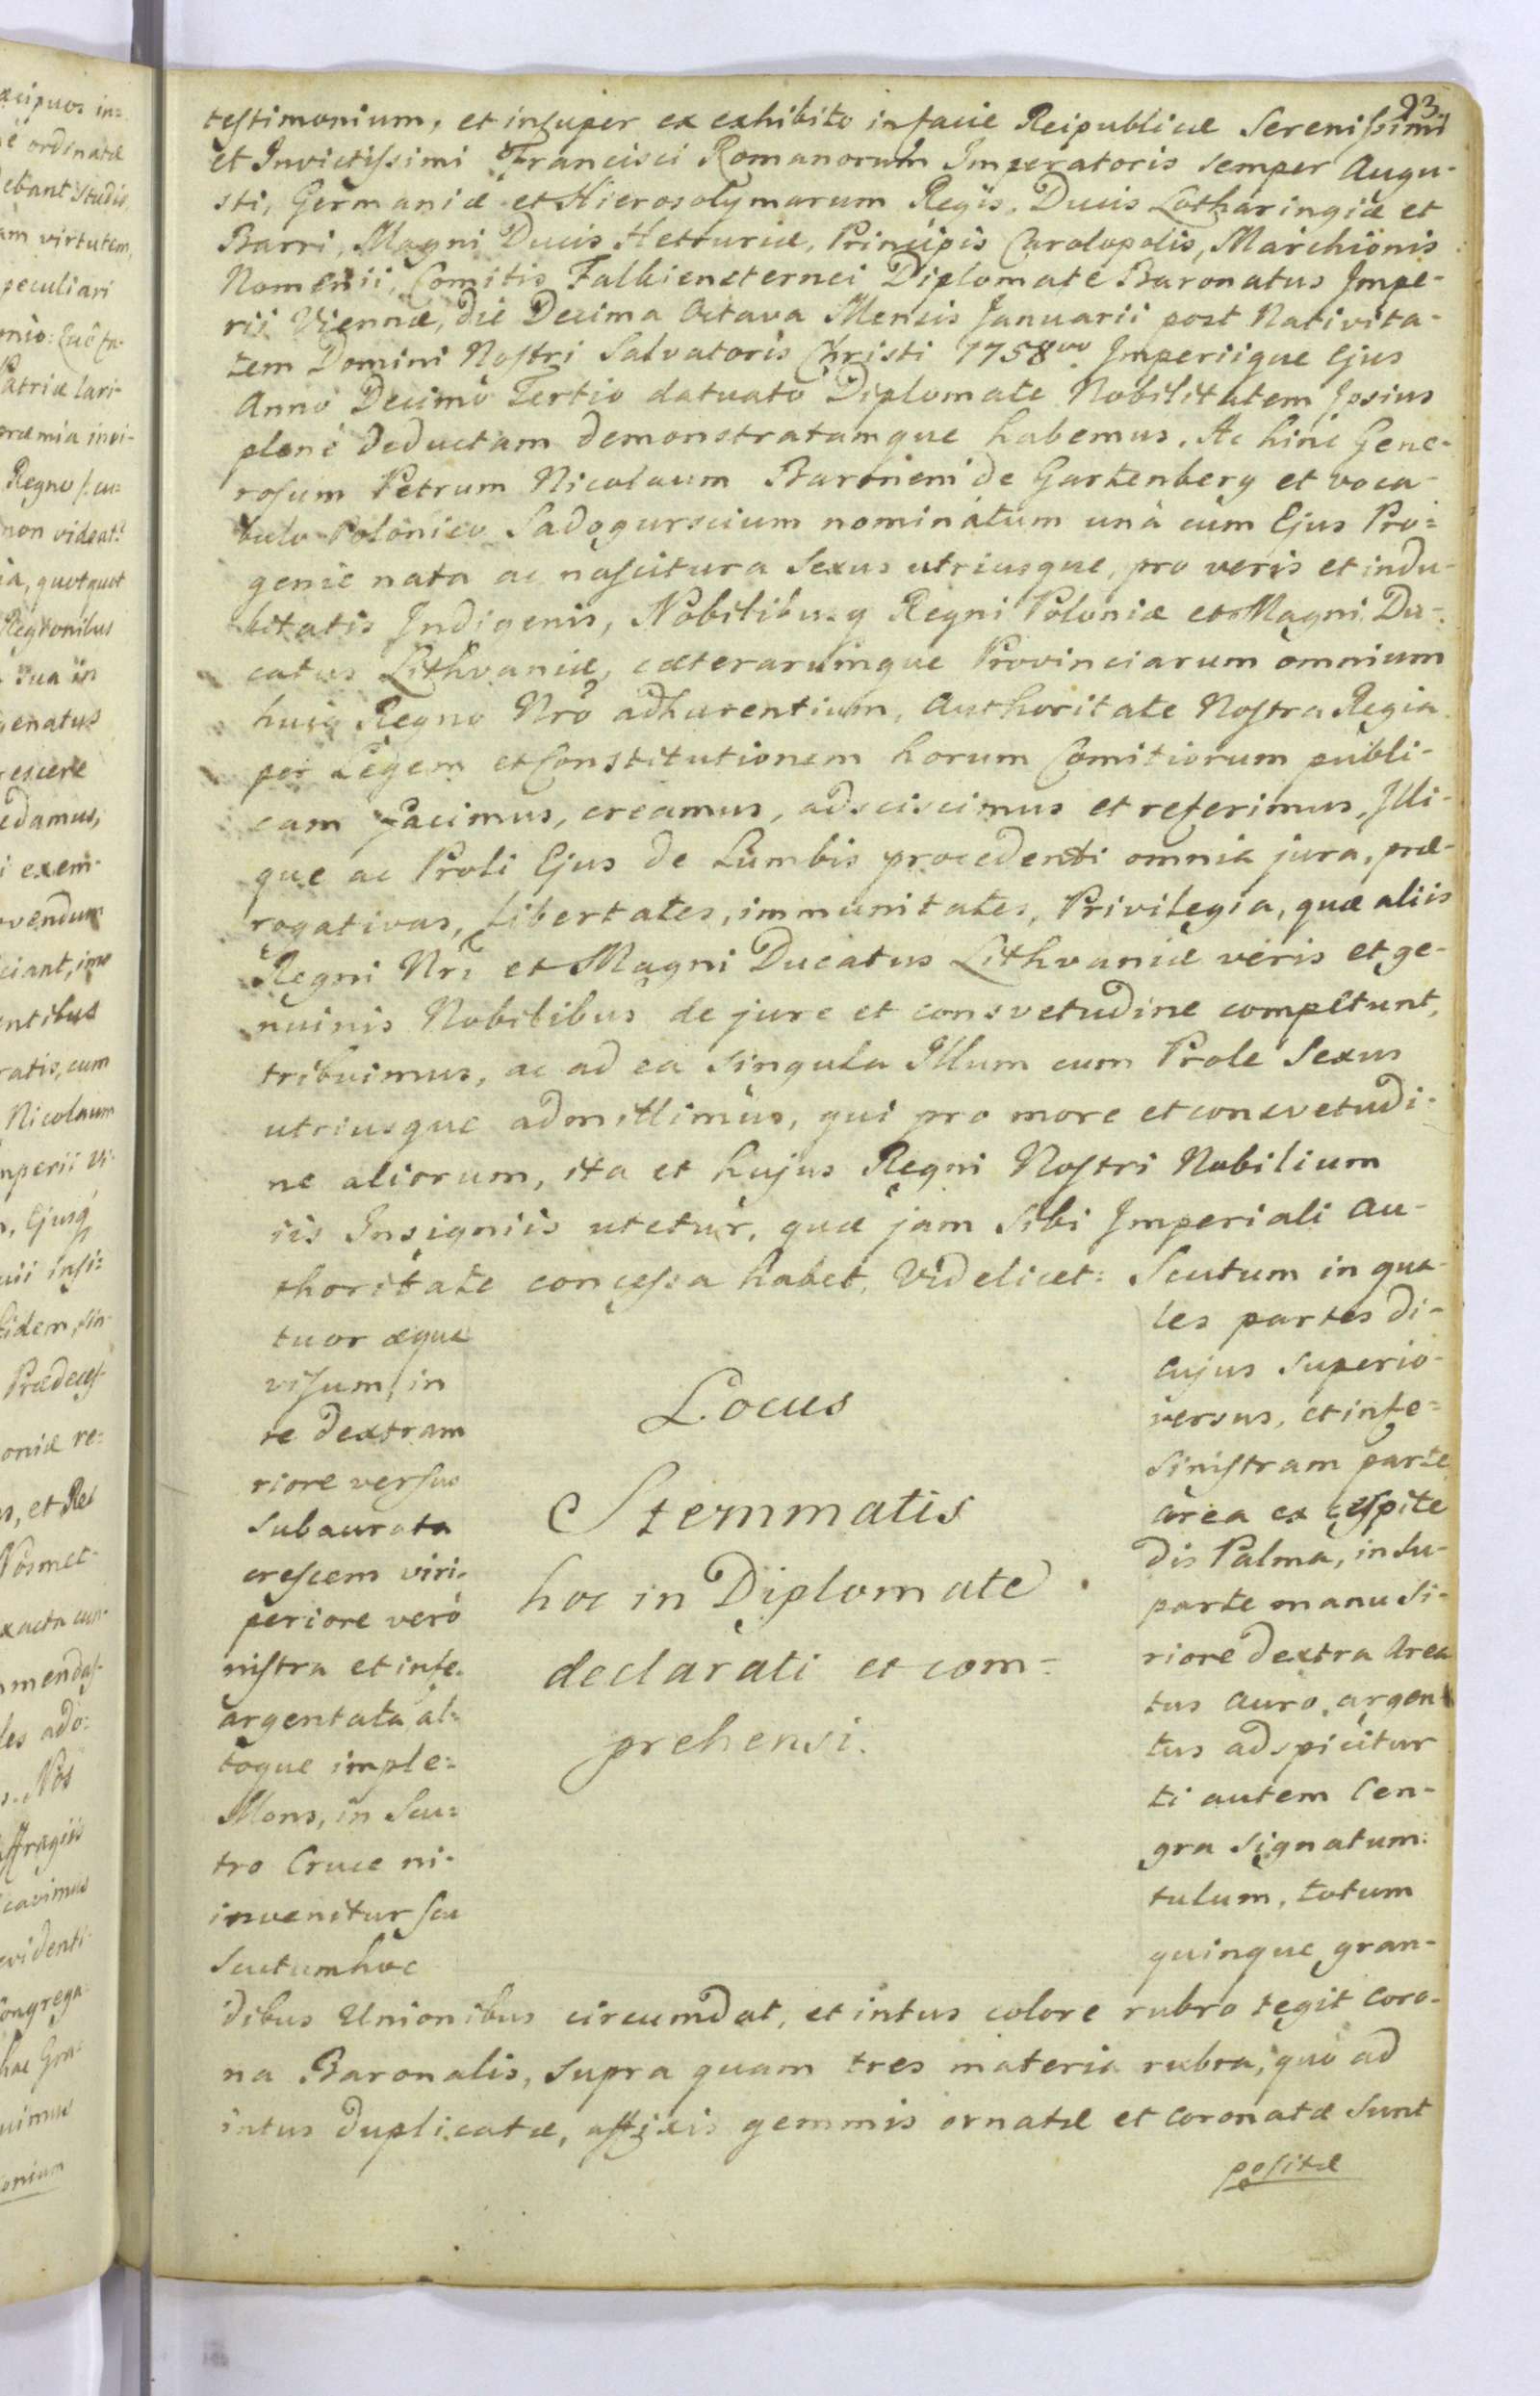 93
testimonium, et insuper ex exhibito in facie Reipublicæ Serenissimi
et Invictissimi Francisci Romanorum Imperatoris semper Augu-
sti, Germaniæ et Hierosolymarum Regis, Ducis Lotharingiæ et
Barri, Magni Ducis Hetruriæ, Principis Carolopolis, Marchionis
Nomenii, Comitis Falkiensternei Diplomate Baronatus Impe-
rii Viennæ, die Decima Octava Mensis Januarii post Nativita-
tem Domini Nostri Salvatoris Christi 1758vo Imperiique Ejus
Anno Decimo Tertio datuato Diplomate Nobilitatem Ipsius
plenè deductam demonstratamque habemus. Ac hinc Gene-
rosum Petrum Nicolaum Baronem de Gartenberg et voca-
bulo Polonico Sadogurscium nominatum unà cum Ejus Pro=
genie nata ac nascitura Sexus utriusque, pro veris et indu-
bitatis Indigenis, Nobilibusq Regni Poloniæ et Magni Du-
catus Lithvaniæ, cæterarumque Provinciarum omnium
huiq Regno Nro adhærentium, Authoritate Nostra Regia
per Legem et Constitutionem horum Comitiorum publi-
cam facimus, creamus, adsciscimus et referimus, Illi-
que ac Proli Ejus de Lumbis procedenti omnia jura, præ-
rogativas, libertates, immunitates, Privilegia, quæ aliis
Regni Nri et Magni Ducatus Lithvaniæ veris et ge-
nuinis Nobilibus de jure et consvetudine competunt,
tribuimus, ac ad ea singula Illum cum Prole Sexus
utriusque admittimus, qui pro more et consvetudi-
ne aliorum, ita et hujus Regni Nostri Nobilium
iis Insigniis utetur, quæ jam sibi Imperiali Au-
thoritate concessa habet, Videlicet: Scutum in qua-
tuor æqua les partes di-
visum, in cujus superio-
re dextram versus, et infe=
riore versus sinistram parte
subaurata area ex cespite
crescens viri- dis Palma, in su-
periore verò parte manu si-
nistra et infe- riore dextra Area
argentata al= tus auro, argen
toque imple= tus adspicitur
Mons, in Scu= ti autem Cen-
tro Cruce ni- gra signatum
invenitur scu tulum, totum
Scutum hoc quinque gran-
Locus
Stemmatis
hoc in Diplomate
declarati et com=
prehensi.
dibus Unionibus circumdat, et intus colore rubro tegit Coro-
na Baronalis, supra quam tres materia rubra, quò ad
intus duplicatæ, affixis gemmis ornatæ et coronatæ sunt
positæ